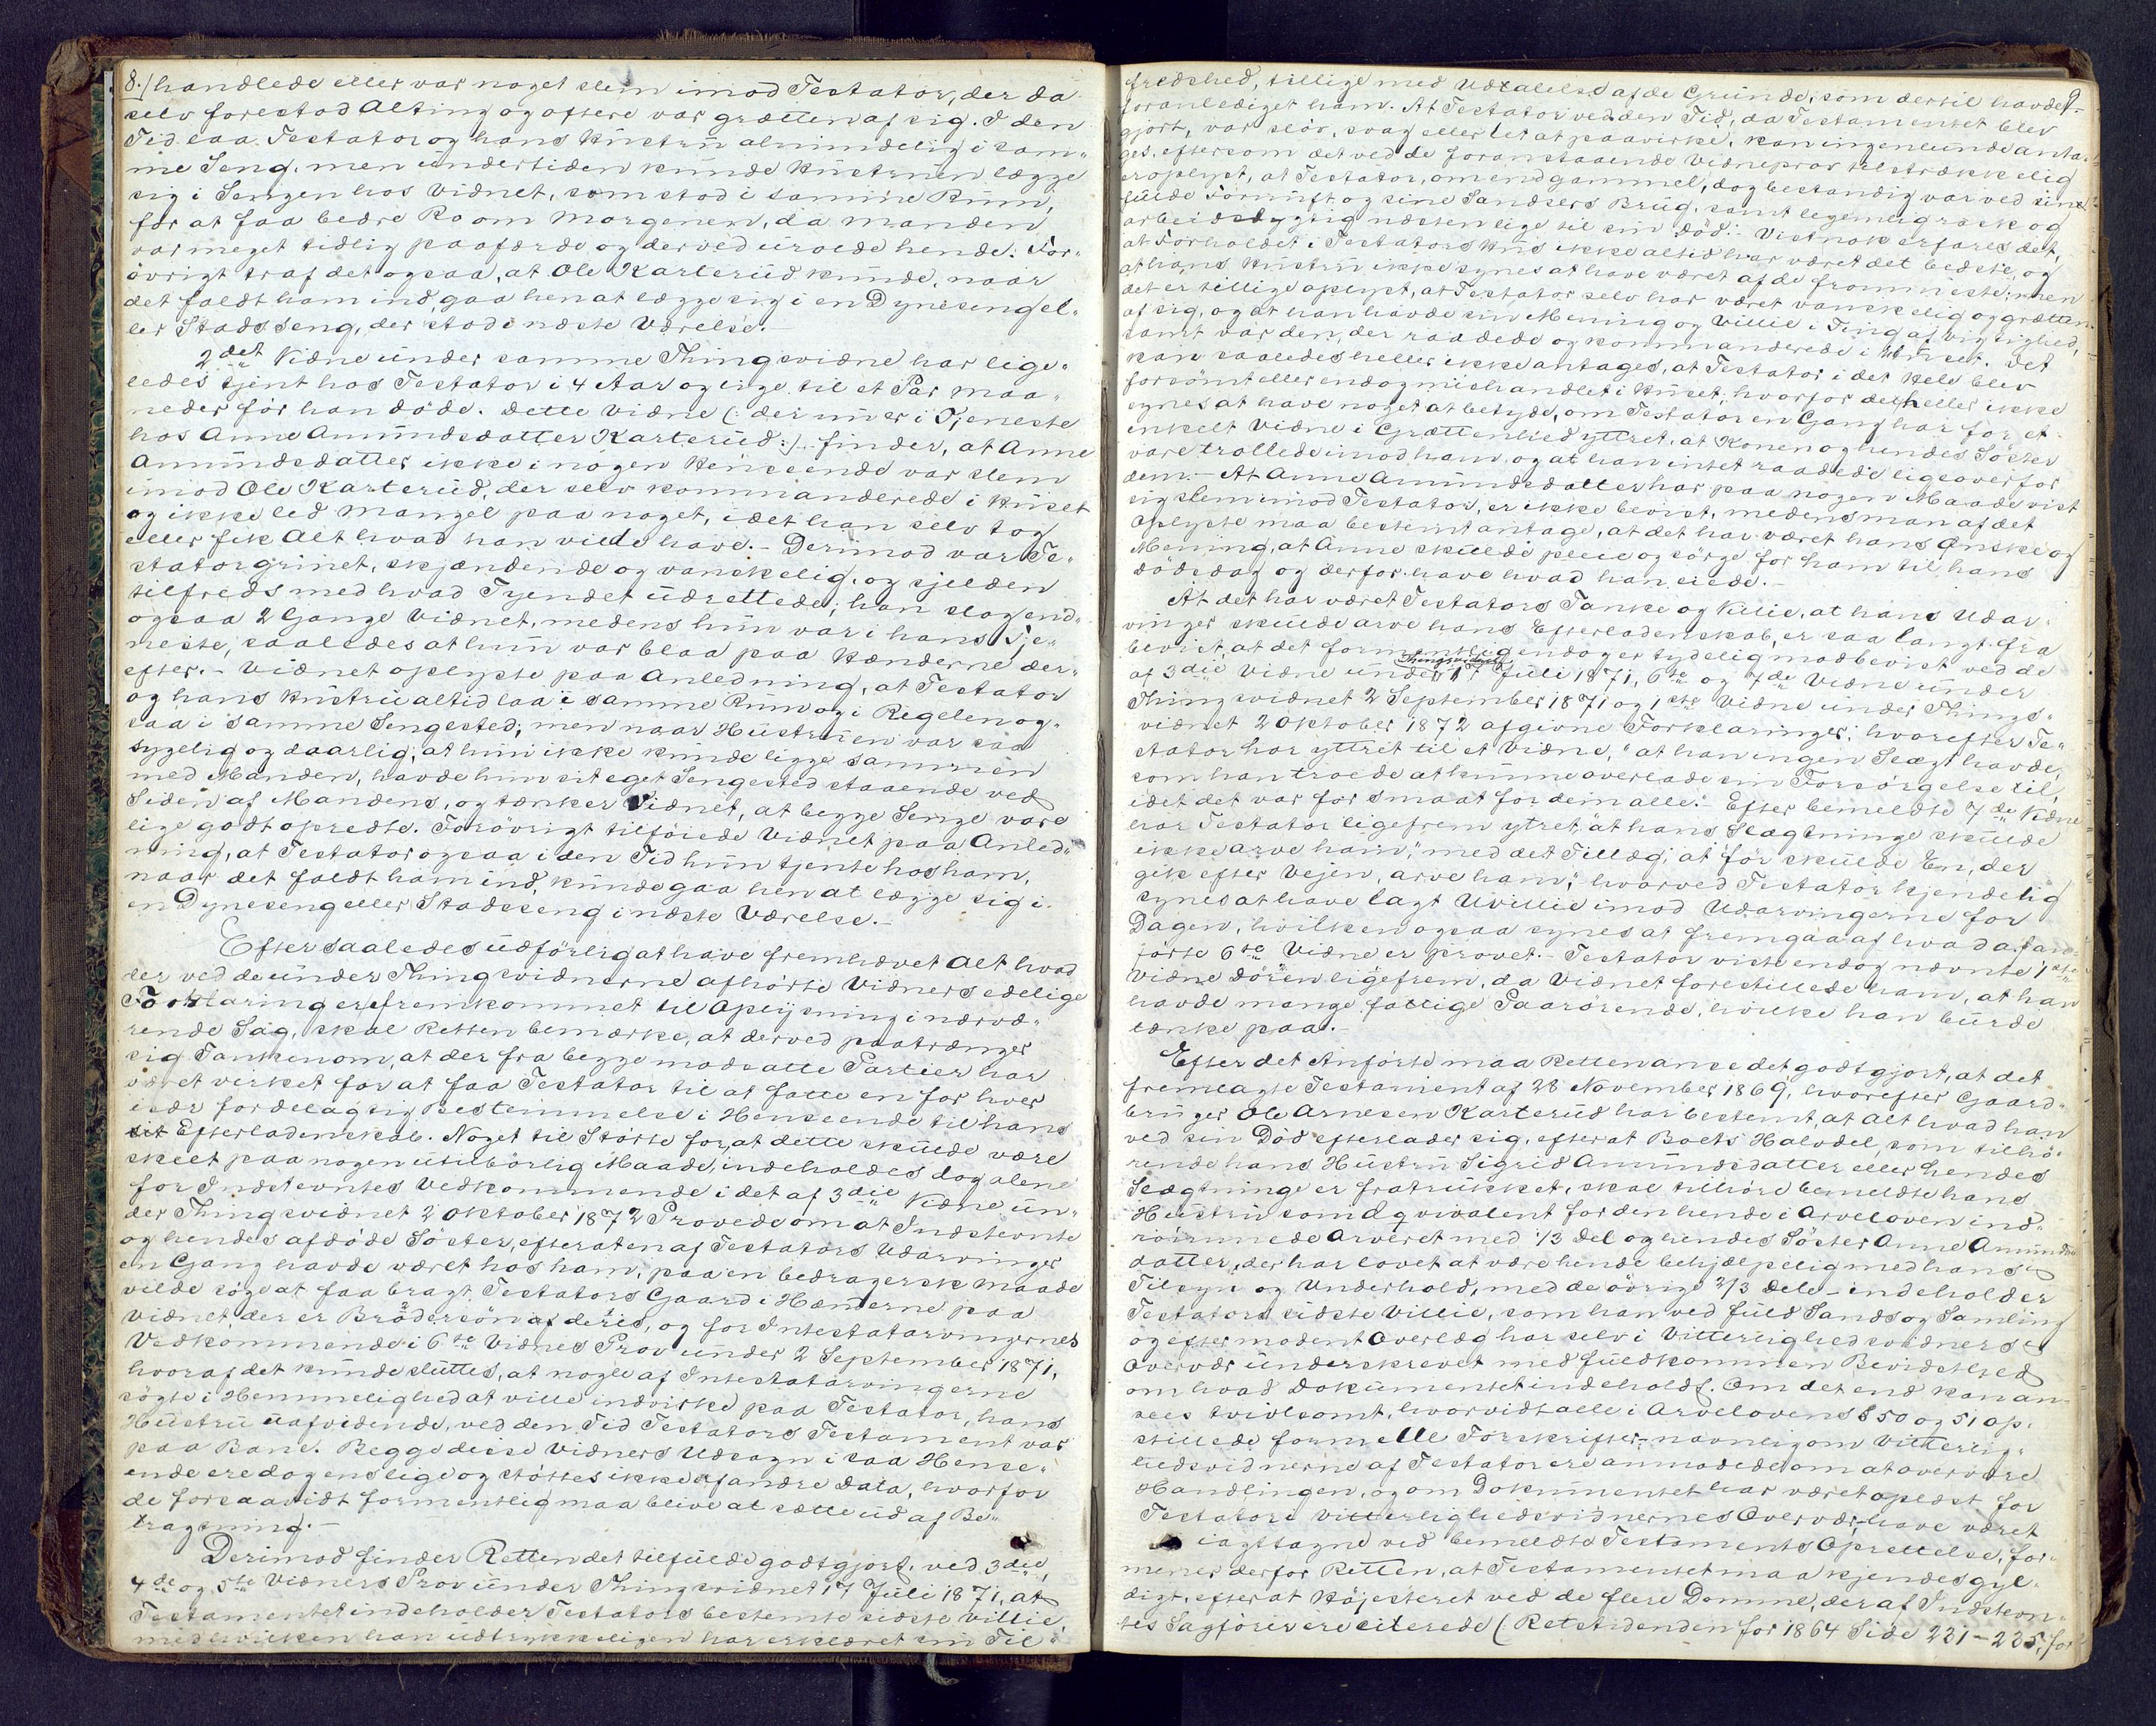 8./ handlede eller var noget slem imod Testator, der da
selv forestod Alting og oftere var grætten af sig. I den
Tid laa Testator og hans Hustru almindelig i sam-
me Seng, men undertiden kunde Hustruen lægge
sig i Sengen hos Vidnet, som stod i samme Rum,
for at faa bedre Ro om Morgenen, da Manden
var meget tidlig paafærde og derved uroede hende. For-
övrigt traf det ogsaa, at Ole Karterud kunde, naar
det faldt ham ind, gaa hen at lægge sig i en Dyneseng el-
ler Stadsseng, der stod i næste Værelse.-
2det Vidne under samme Thingsvidne har lige-
ledes tjent hos Testator i 4 Aar og lige til et Par Maa-
neder för han döde. Dette Vidne (: der nu er i Tjeneste
hos Anne Amundsdatter Karterud :) finder, at Anne
Amundsdatter ikke i nogen Henseende var slem
imod Ole Karterud, der selv kommanderede i Huset
og ikke led Mangel paa noget, idet han selv tog
eller fik Alt hvad han vilde have.- Derimod var Te-
stator grinet, skjændende og vanskelig, og sjelden
tilfreds med hvad Tyendet udrettede; han slog end-
ogsaa 2 Gange Vidnet, medens hun var i hans Tje-
neste, saaledes at hun var blaa paa Hænderne der-
efter.- Vidnet oplyste paa Anledning, at Testator
og hans Hustru altid laa i samme Rum og i Regelen og-
saa i samme Sengested; men naar Hustruen var saa
sygelig og daarlig, at hun ikke kunde ligge sammen
med Manden, havde hun sit eget Sengested staaende ved
Siden af Mandens, og tænker Vidnet, at begge Senge vare
lige godt opredte. Forövrigt tilföiede Vidnet paa Anled-
ning, at Testator ogsaa i den Tid hun tjente hos ham,
naar det faldt ham ind, kunde gaa hen at lægge sig i
en Dyneseng eller Stadsseng i næste Værelse.-
Efter saaledes udförlig at have fremhævet Alt hvad
der ved de under Thingsvidnerne afhörte Vidners edelige
Forklaringer er fremkommet til Oplysning i nærvæ-
rende Sag, skal Retten bemærke, at derved paatrænger
sig Tanken om, at der fra begge modsatte Partier har
været virket for at faa Testator til at fatte en for hver
især fordelagtig Bestemmelse i Henseende til hans
Efterladenskab. Noget til Stötte for, at dette skulde være
skeet paa nogen utilbörlig Maade, indeholdes dog alene
for Indstevntes Vedkommende i det af 3die Vidne un-
der Thingsvidnet 2 Oktober 1872 Provede om at Indstevnte
og hendes afdöde Söster, efterat en af Testators Udarvinger
en Gang havde været hos ham, paa en bedragersk Maade
vilde söge at faa bragt Testators Gaard i Hænderne paa
Vidnet, der er Brödersön af dem, og for Intestatarvingernes
Vedkommende i 6te Vidnes Prov under 2 September 1871,
hvoraf det kunde sluttes, at nogle af Intestatarvingerne
sögte i Hemmelighed at ville indvirke paa Testator, hans
Hustru uafvidende, ved den Tid Testators Testament var
paa Bane. Begge disse Vidners Udsagn i saa Hense-
ende ere dog enslige og stöttes ikke af andre Data, hvorfor
de forsaavidt formentlig maa blive at sætte ud af Be-
tragtning.-
Derimod finder Retten det tilfulde godtgjort, ved 3die,
4de og 5te Vidners Prov under Thingsvidnet 17 Juli 1871, at
Testamentet indeholder Testators bestemte sidste Villie,
med hvilken han udtrykkeligen har erklæret sin Til-
9.
fredshed, tillige med Udtalelse af de Grunde, som dertil havde
foranlediget ham. At Testator ved den Tid, da Testamentet blev
gjort, var slöv, svag eller let at paavirke, kan ingenlunde anta-
ges, eftersom det ved de foranstaaende Vidneprov tilstrækkelig
er oplyst, at Testator, om end gammel, dog bestandig var ved sin
fulde Fornuft og sine Sandsers Brug, samt legemlig rask og
arbeidsdygtig næsten lige til sin Död.- Vistnok erfares det,
at Forholdet i Testators Hus ikke altid har været det bedste, og
at hans Hustru ikke synes at have været af de frommeste; men
det er tillige oplyst, at Testator selv har været vanskelig og grætten
af sig, og at han havde sin Mening og Villie i Ting af Vigtighed,
samt var den, der raadede og kommanderede i Huset. Det
kan saaledes heller ikke antages, at Testator i det Hele blev
forsömt eller endog mishandlet i Huset, hvorfor det heller ikke
synes at have noget at betyde, om Testator en Gang har for et
enkelt Vidne i Grættenhed yttret, at Konen og hendes Söster
vare trollede imod ham, og at han intet raadede ligeoverfor
dem.- At Anne Amundsdatter har paa nogen Maade vist
sig slem imod Testator, er ikke bevist, medens man af det
Oplyste maa bestemt antage, at det har været hans Önske og
Mening, at Anne skulde pleie og sörge for ham til hans
Dödsdag og derfor have hvad han eiede.-
At det har været Testators Tanke og Villie, at hans Udar-
vinger skulde arve hans Efterladenskab, er saa langt fra
bevist, at det formentlig endog er tydelig modbevist ved de
af 3die Vidne under Thingsvidnet 17 Juli 1871, 6te og 7de Vidne under
Thingsvidnet 2 September 1871 og 1ste Vidne under Things-
vidnet 2 Oktober 1872 afgivne Forklaringer, hvorefter Te-
stator har yttret til et Vidne, "at han ingen Slægt havde,
som han troede at kunne overlade sin Forsörgelse til,
idet det var for smaat for dem alle".- Efter bemeldte 7de Vidne
har Testator ligefrem ytret, "at hans Slægtninge skulde
ikke arve ham," med det Tillæg, at "för skulde En, der
gik efter Vejen, arve ham," hvorved Testator kjendelig
synes at have lagt Uvillie imod Udarvingerne for
Dagen, hvilken ogsaa synes at fremgaa af hvad af an-
förte 6te Vidne er provet.- Testator viste endog nævnte 1ste
Vidne Dören ligefrem, da Vidnet forestillede ham, at han
havde mange fattige Paarörende, hvilke han burde
tænke paa.-
Efter det Anförte maa Retten anse det godtgjort, at det
fremlagte Testament af 28 November 1869, hvorefter Gaard-
bruger Ole Arnesen Karterud har bestemt, at Alt hvad han
ved sin Död efterlader sig, efterat Boets Halvdel, som tilhö-
rende hans Hustru Sigrid Amundsdatter eller hendes
Slægtninge er fratrukket, skal tilhöre bemeldte hans
Hustru som Æqvivalent for den hende i Arveloven ind-
römmede Arveret med 1/3 Del og hendes Söster Anne Amunds-
datter, der har lovet at være hende behjælpelig med hans
Tilsyn og Underhold, med de övrige 2/3 Dele - indeholder
Testators sidste Villie, som han ved fuld Sands og Samling
og efter modent Overlæg har selv i Vitterlighedsvidners
Overvær underskrevet med fuldkommen Bevidsthed
om hvad Dokumentet indeholdt. Om det end kan an-
sees tvivlsomt, hvorvidt alle i Arvelovens § 50 og 51 op-
stillede formelle Forskrifter,- navnlig om Vitterlig-
hedsvidnerne af Testator ere anmodede om at overvære
Handlingen, og om Dokumentet har været oplæst for
Testator i Vitterlighedsvidnernes Overvær,- have været
iagttagne ved bemeldte Testaments Oprettelse, for-
mener derfor Retten, at Testamentet maa kjendes gyl-
digt, efterat Höjesteret ved de flere Domme, der af Indstevn-
tes Sagförer ere citerede (Retstidenden for 1864 Side 231-235, for